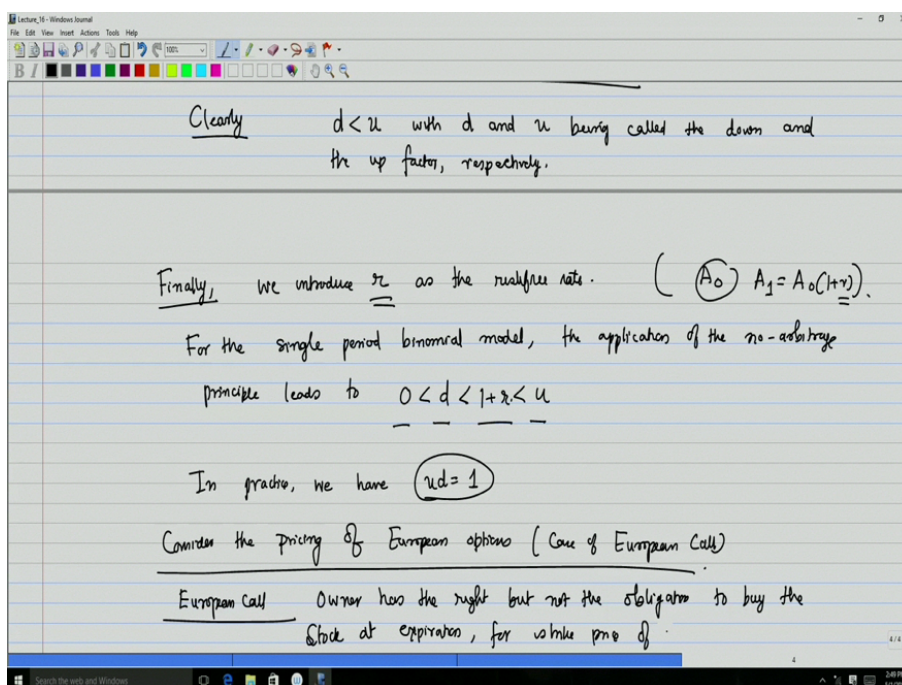 Lecture_16 - Windows Journal
File Edit View Insert Actions Tools Help
100%
B I
Clearly d < u with d and u being called the down and
the up factor, respectively.
Finally, we introduce r as the riskfree rate. ( A₀ A₁ = A₀(1+r) ).
For the single period binomial model, the application of the no-arbitrage
principle leads to 0 < d < 1+r < u
In practice, we have ud = 1
Consider the pricing of European options ( Case of European Call)
European Call Owner has the right but not the obligation to buy the
Stock at expiration, for strike price of
4/4
4
Search the web and Windows